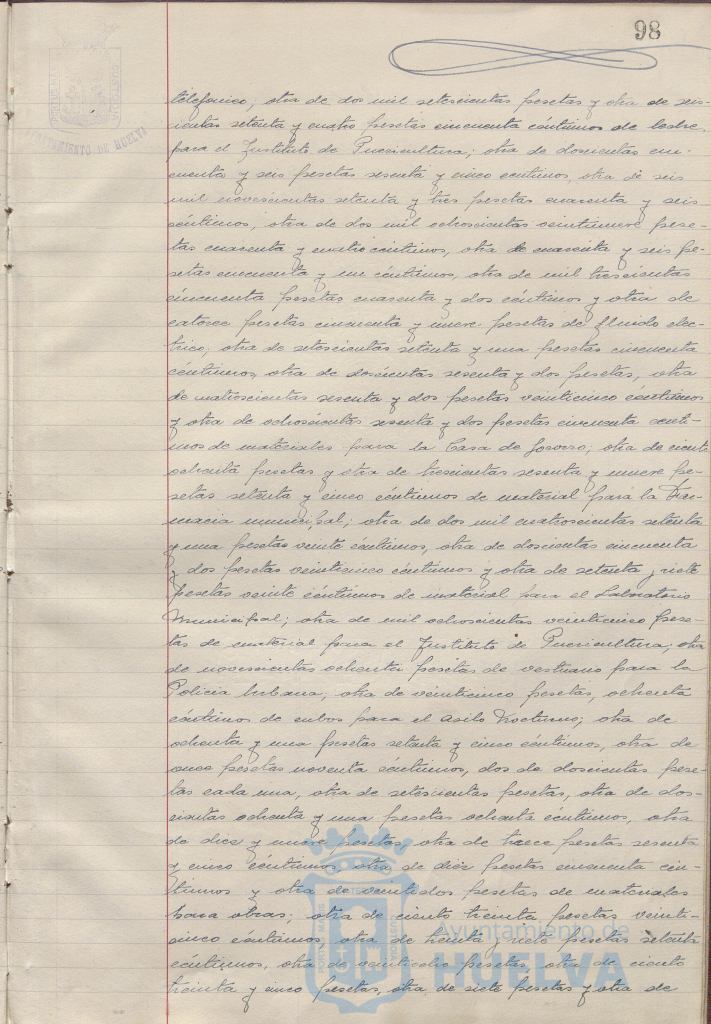 98
telefonico; otra de dos mil setescientas pesetas y otra de seis-
cientas setenta y cuatro pesetas cincuenta céntimos de leche
para el Instituto de Puericultura; otra de doscientas cin-
cuenta y seis pesetas sesenta y cinco centimos, otra de seis
mil novescientas setenta y tres pesetas cuarenta y seis
céntimos, otra de dos mil ochoscientas veintinueve pese-
tas cuarenta y cuatro centimos, otra de cuarenta y seis pe-
setas cincuenta y un céntimos, otra de mil trescientas
cincuenta pesetas cuarenta y dos céntimos y otra de
catorce pesetas cincuenta y nueve pesetas de fluido elec-
trico; otra de setescientas setenta y una pesetas cincuenta
céntimos, otra de doscientas sesenta y dos pesetas, otra
de cuatroscientas sesenta y dos pesetas veinticinco céntimos
y otra de ochoscientas sesenta y dos pesetas cincuenta centi-
mos de materiales para la Casa de Socorro; otra de ciento
ochenta pesetas y otra de trescientas sesenta y nueve pe-
setas setenta y cinco céntimos de material para la Far-
macia municipal; otra de dos mil cuatroscientas setenta
y una pesetas veinte céntimos, otra de doscientas cincuenta
y dos pesetas veinticinco céntimos y otra de setenta y siete
pesetas veinte céntimos de material para el Laboratorio
Municipal; otra de mil ochoscientas veinticinco pese-
tas de material para el Instituto de Puericultura; otra
de novescientas ochenta pesetas de vestuario para la
Policia Urbana; otra de veinticinco pesetas, ochenta
céntimos de cubos para el Asilo Nocturno; otra de
ochenta y una pesetas setenta y cinco céntimos, otra de
once pesetas noventa céntimos, dos de doscientas pese-
tas cada una, otra de setescientas pesetas, otra de dos-
cientas ochenta y una pesetas ochenta céntimos, otra
de diez y nueve pesetas, otra de trece pesetas sesenta
y cinco céntimos, otra de diez pesetas cincuenta cén-
timos y otra de veintidos pesetas de materiales
para obras; otra de ciento treinta pesetas veinti-
cinco céntimos, otra de treinta y siete pesetas setenta
céntimos, otra de veinticuatro pesetas, otra de ciento
treinta y cinco pesetas, otra de siete pesetas y otra de
Ayuntamiento de
HUELVA